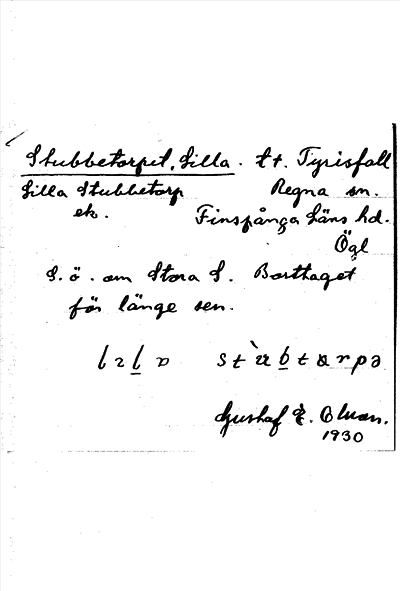 Stubbetorpet, Lilla. tt. Tyrisfall
Lilla Stubbetorp Regna sn.
ek. Finspånga läns hd.
Ögl
S. ö. om Stora S. Borttaget
för länge sen.
Gustaf
1930